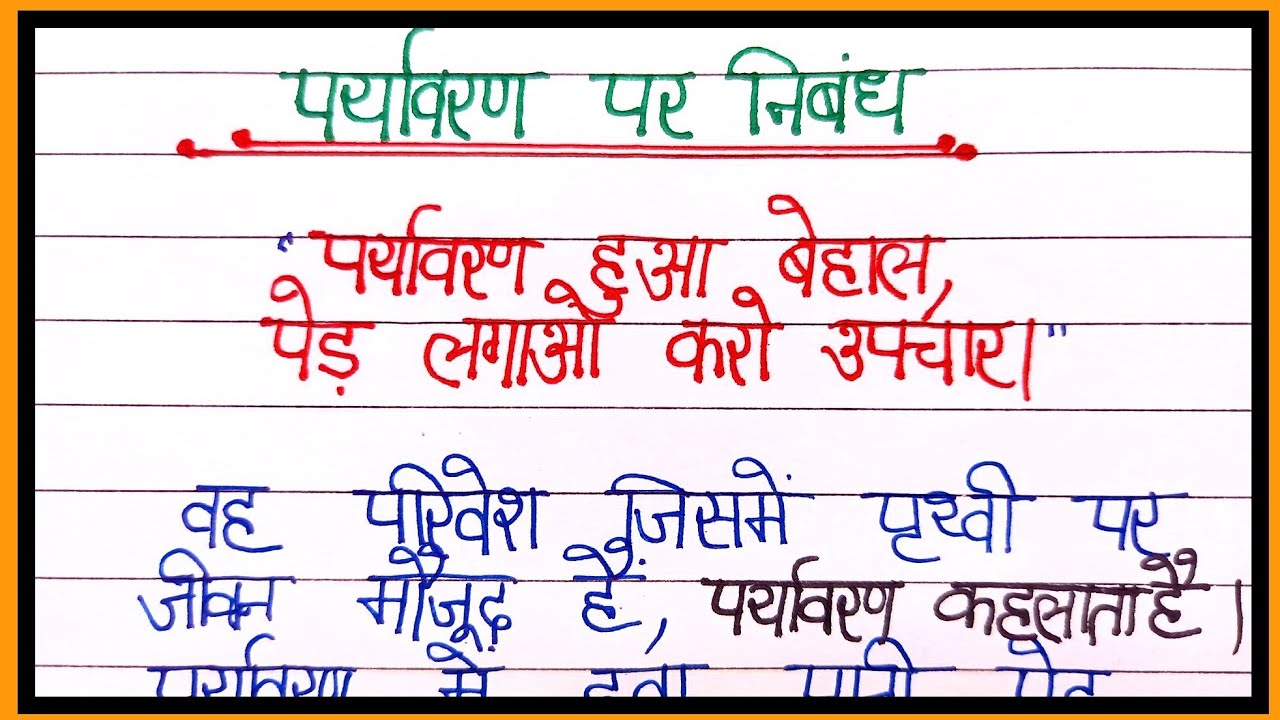 पर्यावरण पर निबंध
"पर्यावरण हुआ बेहाल,
पेड़ लगाओ करो उपचार।"
वह परिवेश जिसमें पृथ्वी पर
जीवन मौजूद है, पर्यावरण कहलाता है।
पर्यावरण में हवा पानी पेड़